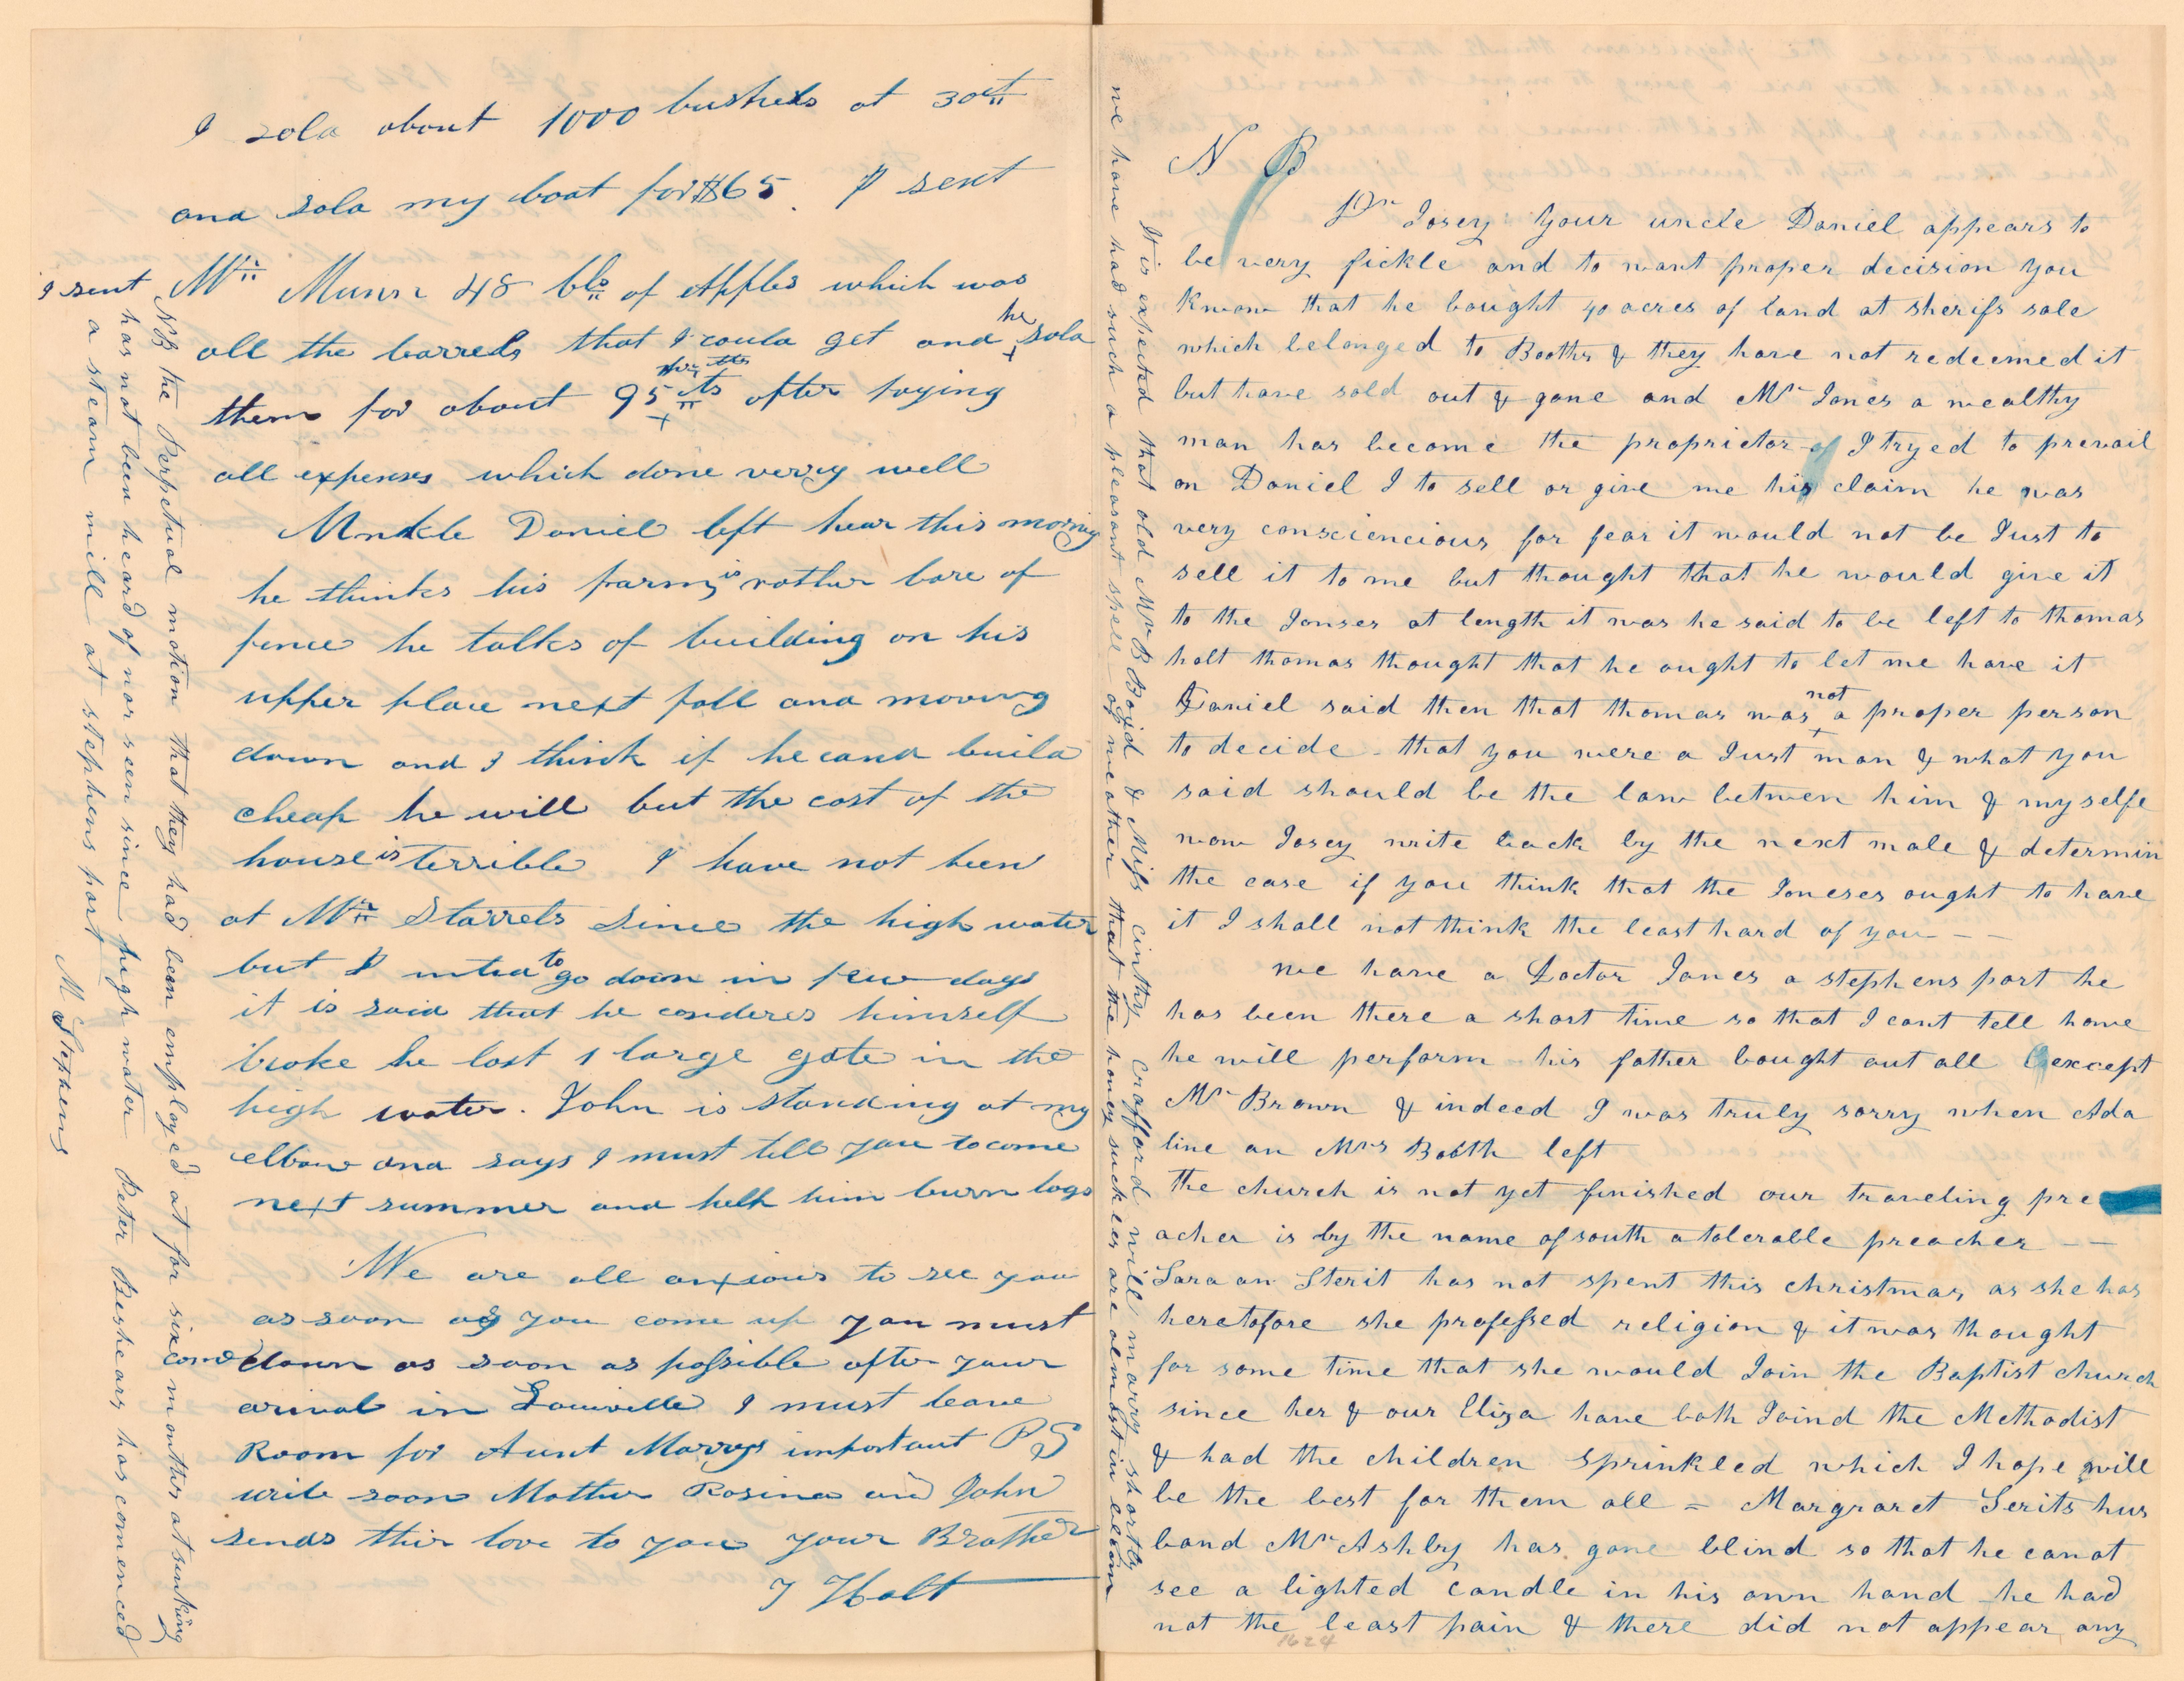 I sold about 1000 bushels at 30ct
and sold my boat for $65. I sent
Mr Munn 48 bls of Apples which was
all the barrels that I could get and he sold
them for about 95 cts after paying
all expenses which done verry well
Unkle Daniel left hear this morning
he thinks his farm is rather bare of
fence he talks of building on his
upper place next fall and moving
down and I think if he cand build
cheap he will but the cost of the
house is terrible I have not been
at Mr Starrels Since the high water
but I inted to go down in few days
it is said that he conideres himself
broke he lost 1 large gate in the
high water. John is standing at my
elbow and says I must tell you to come
next summer and help him burn logs
We are all anxious to see you
as soon as you come up you must
come down as soon as possible after your
arival in Louiville I must leave
Room for Aunt Marrys important PS
write soon Mother Rosina and John
sends thir love to you your Brother
T Holt
I sent
NB the Perpetual motion that they had been employed at for six months at sinking
has not been heard of nor seen since high water Peter Beshears has comenced
a steam mill at stephens port
M Stephens
N B
Dr Josey your uncle Daniel appears to
be very fickle and to want proper decision you
know that he bought 40 acres of land at sherifs sale
which belonged to Booths & they have not redeemed it
but have sold out & gone and Mr Jones a wealthy
man has become the proprietor of I tryed to prevail
on Daniel I to sell or give me his claim he was
very consciencious for fear it would not be Just to
sell it to me but thought that he would give it
to the Jonses at length it was he said to be left to thomas
holt thomas thought that he ought to let me have it
Daniel said then that thomas was not a proper person
to decide that you were a Just man & what you
said should be the law betwen him & my selfe
now Josey write back by the next male & determin
the case if you think that the Joneses ought to have
it I shall not think the least hard of you - -
we have a Doctor Jones a stephens port he
has been there a short time so that I cant tell howe
he will perform his father bought out all except
Mr Brown & indeed I was truly sorry when Ada
line an Mrs Booth left
the church is not yet finished our traveling pre
acher is by the name of south a tolerable preacher - -
Sara an Sterit has not spent this christmas as she has
heretofore she professed religion & it was thought
for some time that she would Join the Baptist church
since her & our Eliza have both Joind the Methodist
& had the children sprinkled which I hope will
be the best for them all = Margraret Serits hus
band Mr Ashby has gone blind so that he canot
see a lighted candle in his own hand he had
not the least pain & there did not appear any
1624
It is expected that old Mr B Boyd & Miss cinthy crafford will marry shortly
we have had such a pleasant spell of weather that the honey suckles are almost in bloom